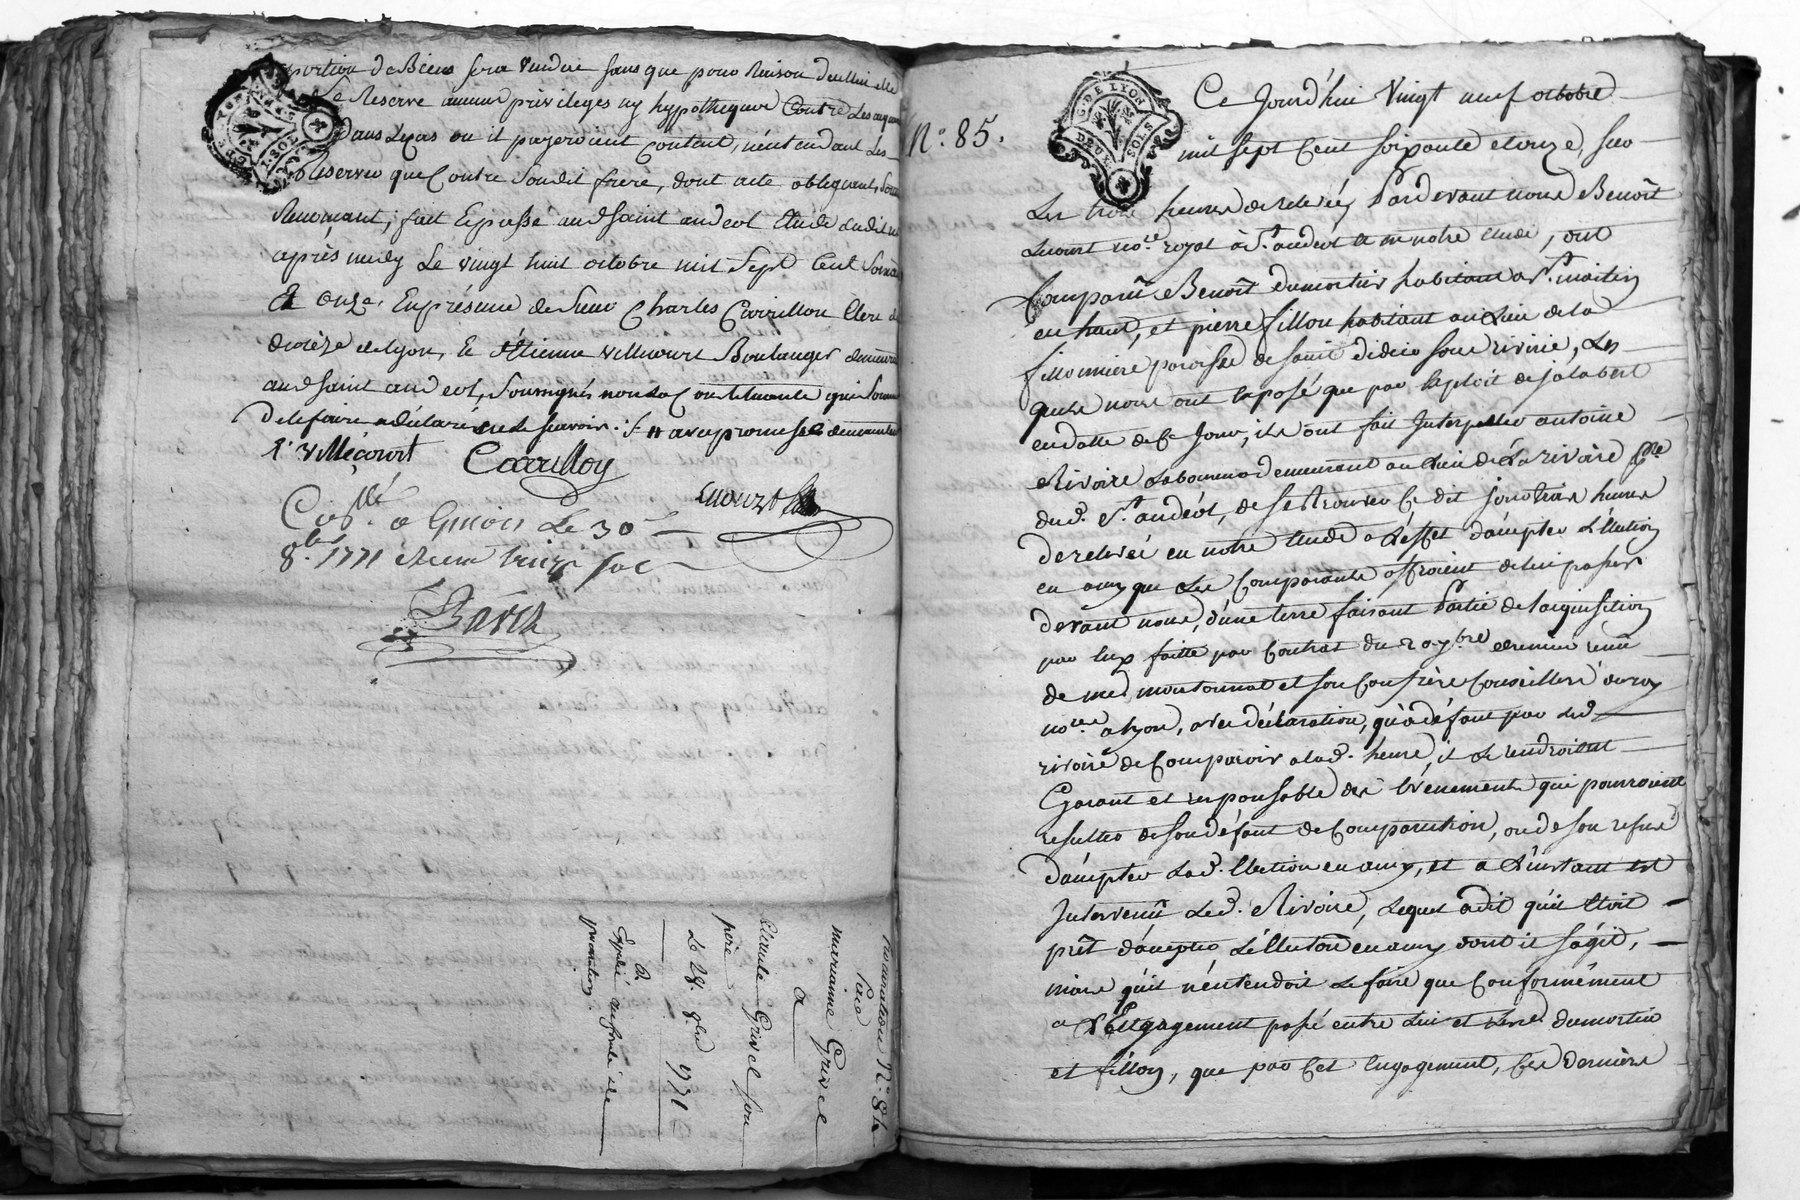 portion de Biens sera vendue sans que pour Raison d'eulluielle
se Reserve aucuns privileges ny hypotheque Contre Les acque
dans Lecas ou il payeroient content, n'entendant Les
Reserver que Contre Sondit frere, dont acte obligeant, Soum
Renonçant; fait Et passé aud Saint andeol Etude dudit no
après midy Le vingt huit octobre mil Sept Cent Soixante
Et onze, En présence de Sieur Charles Cavrillon Clerc du
diocèze de Lyon, Et d'Etienne villecourt Boulanger demeurant
aud Saint andeol, Soussignés non La Constituante qui Somm
de le faire a déclaré ne le Scavoir. avec promesse
E. villecourt Cavrillon
Lucourt
Con.llé a Givors Le 30
8.bre 1771 Recu treize sols
Bavoz
Procuration N.o 84
Pour
marianne Grivel
a
Claude Grivel son
pere
Le 28. 8bre 1771
Expédié
N.o 85.
G. DE LYON
DEUX SOLS
Ce Jourd'hui Vingt neuf octobre
mil Sept Cent Soixante etonze, sur
Les trois heures de relevée, Pardevant nous Benoît
Lucourt no.re royal à S.t andeol et en notre Etude, ont
Comparu Benoît Dumortier habitant a S.t martin
en haut, et pierre fillon habitant au Lieu de la
fillonniere paroisse de saint didier sous riverie, Les
quels nous ont Exposé que par Exploit de jalabert
en datte de Ce Jour, ils ont fait Interpeller antoine
Rivoire Laboureur demeurant au Lieu de La rivoire p.sse
dud. S.t andéol, de se trouver Ce dit jour trois heures
de relevée en notre Etude a L'éffet d'accepter L'élection
en amy que Les Comparants offroient de lui passer
devant nous, d'une terre faisant Partie de l'acquisition
par Eux faitte par Contrat du 20 7.bre dernier reçu
de me montonnat et son Confrère Conseillers du roy
no.res a Lyon, avec déclaration, qu'a défaut par Led
rivoire de Comparoir a lad. heure, il se rendroient
Garant et responsable des Evénements qui pourroient
resulter de son défaut de Comparution, ou de son refus
d'accepter Lad. Election en amy, et a L'instant est
Intervenû Led. Rivoire, Lequel a dit qu'il Etoit
prêt d'accepter L'élection en amy dont il s'agit,
mais qu'il n'entendoit Le faire que Conformément
a L'Engagement passé entre Lui et Lesd. dumortier
et fillon, que par Cet Engagement, Ces derniers